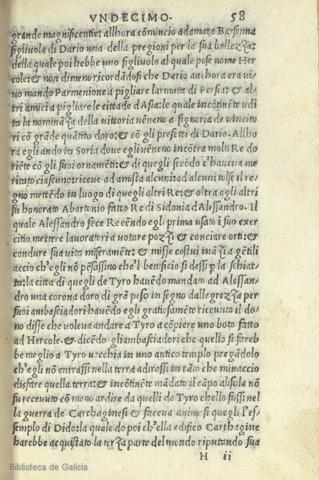 VNDECIMO. 58
grande magnificentie: allhora comincio ad amare Barsenna
figliuola di Dario una della pregioni per la sua bellezza:
della quale poi hebbe uno figliuolo al quale pose nome Her
cole: & non dimeno ricordadosi che Dario anchora era vi
uo mando Parmenione a pigliare larmata di Persia: & al
tri amici a pigliare le citta de d'Asia: le quale incōtinēte udi
ta la nomināza della vittoria vēneno a signoria de vincito
ri cō grāde quātita doro: & cō gli prefetti di Dario. Allho
ra egli ando ī Soria doue egli vēneno incōtra molti Re do
riēte cō gli suoi ornamēti: & di quegli secōdo c'haueua me
ritato ciascuno: riceue ad amista alcuni: ad alcuni tolse il re
gno mettēdo in luogo di quegli altri Re: & oltra agli altri
fu honorato Abartonio fatto Re di Sidonia d'Alessandro. Il
quale Alessandro fece Re eēndo egli prima usato i suo exer
citio mettere lavoratori a votare pozzi & conciare orti: &
condure sua vita miseramēte: & misse costui ināzi a gētili
accio ch'egli nō pēsassino che'l benificio si dessi p la schiat
ta: la citta di quegli de Tyro hauēdo mandato ad Alessan
dro una corona doro di grā peso in segno dallegrezza per
suoi ambasciadori hauēdo egli gratiosamēte riceuuto il do
no disse che voleua andare a Tyro a cōpiere uno boto fatto
ad Hercole. & dicēdo gli ambasciadori che quello si fareb
be meglio a Tyro vecchia in uno antico templo pregādolo
ch'egli nō entrassi nella terra adirossi in tāto che minaccio
disfare quella terra: & incōtinēte mādato il capo alisola nō
fu receuuto cō meno ardire da quelli de Tyro che llo fussi nel
la guerra de Carthaginesi & faceua animo si quegli l'es
semplo di Dido: la quale do poi ch'ella edifico Carthagine
harebbe acquistato la terza parte del mondo riputando sua
H ii
Biblioteca de Galicia